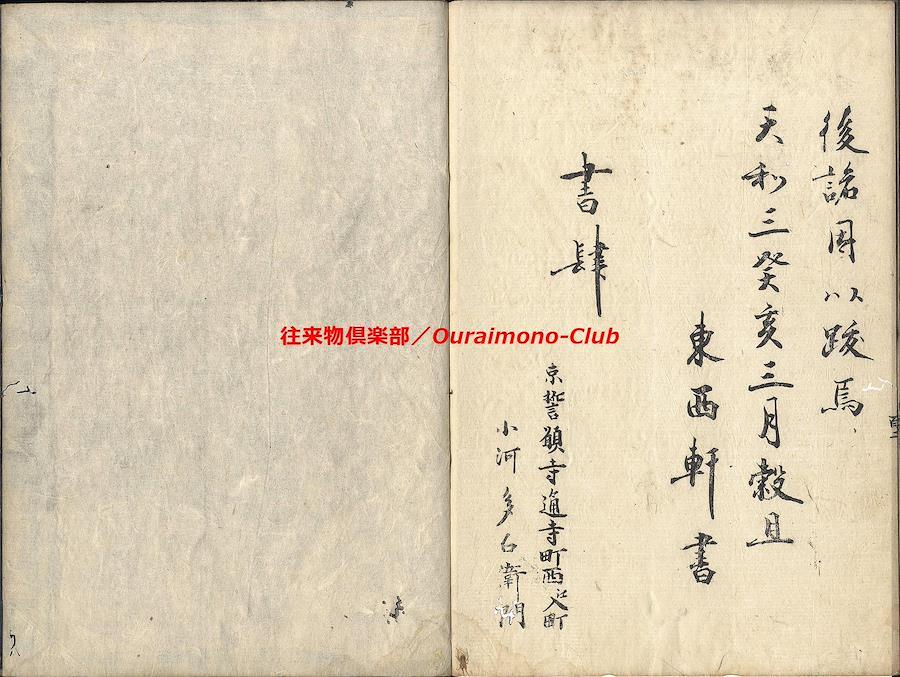 後諮因以跋焉
天和三癸亥三月穀旦
東西軒書
書肆
京誓願寺通寺町西江入町
小河多右衛門
往来物倶楽部／Ouraimono-Club